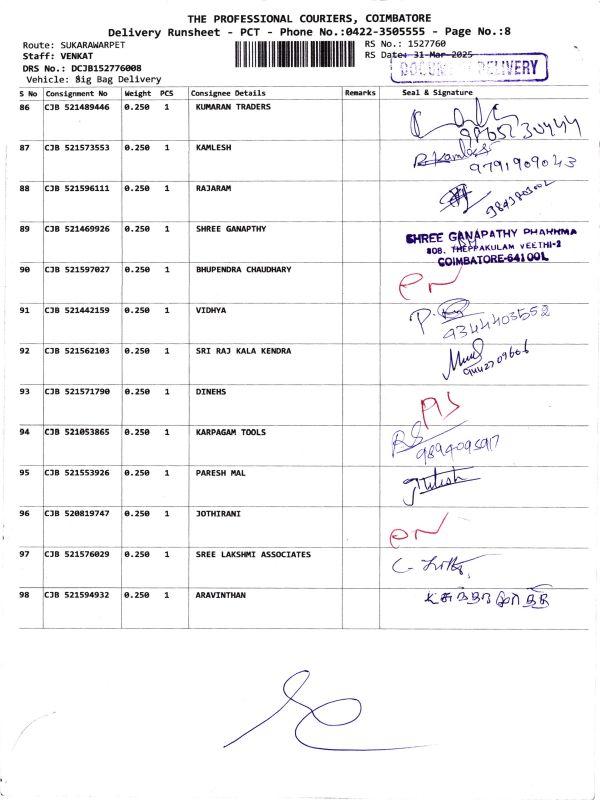 THE PROFESSIONAL COURIERS, COIMBATORE
Delivery Runsheet - PCT - Phone No.:0422-3505555 - Page No.:8
Route: SUKARAWARPET RS No.: 1527760
Staff: VENKAT RS Date: 31-Mar-2025
DRS No.: DCJB152776008 DOCUMENT DELIVERY
Vehicle: Big Bag Delivery
S No Consignment No Weight PCS Consignee Details Remarks Seal & Signature
86 CJB 521489446 0.250 1 KUMARAN TRADERS
87 CJB 521573553 0.250 1 KAMLESH
9791909043
88 CJB 521596111 0.250 1 RAJARAM
89 CJB 521469926 0.250 1 SHREE GANAPTHY
SHREE GANAPATHY PHARMA
808. THEPPAKULAM VEETHI-2
COIMBATORE-641001.
90 CJB 521597027 0.250 1 BHUPENDRA CHAUDHARY
91 CJB 521442159 0.250 1 VIDHYA
9344403552
92 CJB 521562103 0.250 1 SRI RAJ KALA KENDRA
9442709606
93 CJB 521571790 0.250 1 DINEHS
94 CJB 521053865 0.250 1 KARPAGAM TOOLS
95 CJB 521553926 0.250 1 PARESH MAL
96 CJB 520819747 0.250 1 JOTHIRANI
97 CJB 521576029 0.250 1 SREE LAKSHMI ASSOCIATES
98 CJB 521594932 0.250 1 ARAVINTHAN